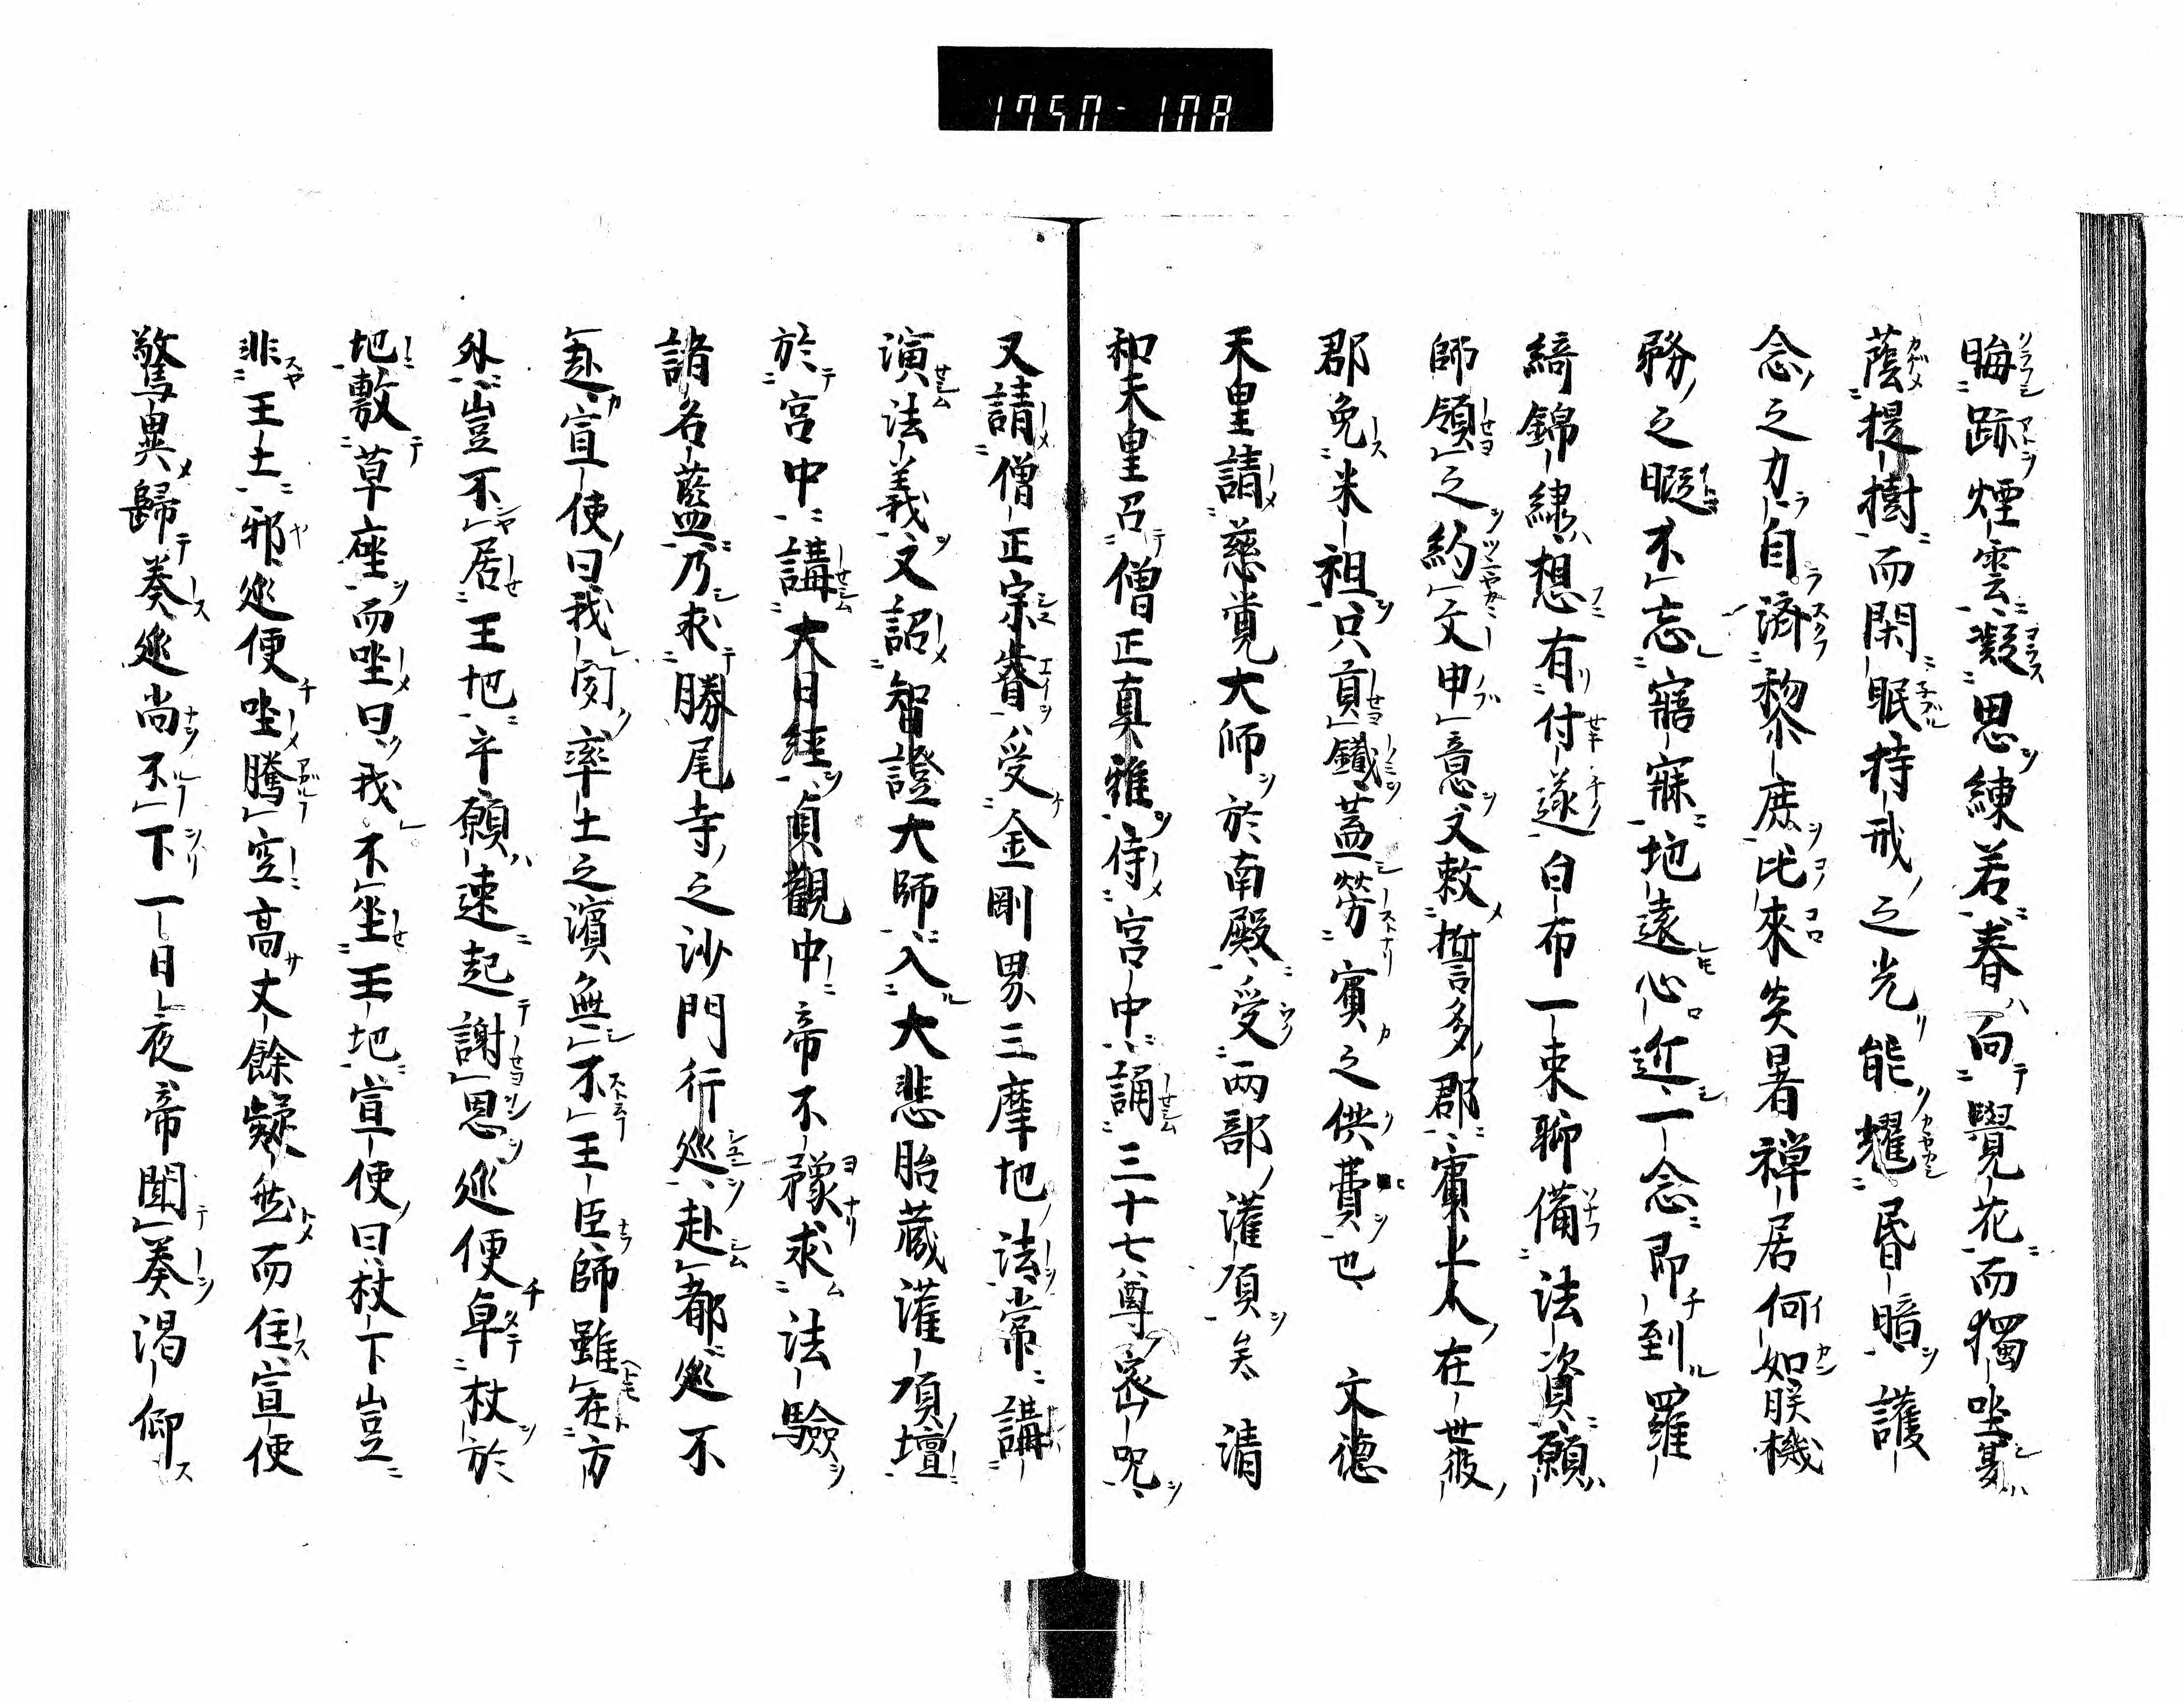 1750-108
晦跡煙雲凝思練若春向覺花而獨坐夏
蔭提樹而閑眠持戒之光能耀昏暗護
念之力自濟黎庶比來炎暑禅居何如朕機
務之暇不忘寤寐地遠心近一念即到羅
綺錦繍想有付遂白布一束聊備法資願
師領之約文申意又敕誓多郡賓上人在世彼
郡免米祖只貢鐵蓋労賓之供費也 文徳
天皇請慈覚大師於南殿受両部灌頂矣 清
和天皇召僧正真雅侍宮中誦三十七尊密呪
又請僧正宗睿受金剛界三摩地法常講
演法義又詔智證大師入大悲胎蔵灌頂壇
於宮中講大日経貞觀中帝不豫求法驗
諸名藍乃求勝尾寺之沙門行巡赴都巡不
赴宣使曰我聞率土之濱無不王臣師雖在方
外豈不居王地乎願速起謝恩巡便卓杖於
地敷草座而坐曰我不坐王地宣使曰杖下豈
非王土邪巡便坐騰空高丈餘凝然而住宣使
驚異歸奏巡尚不下一日夜帝聞奏渇仰